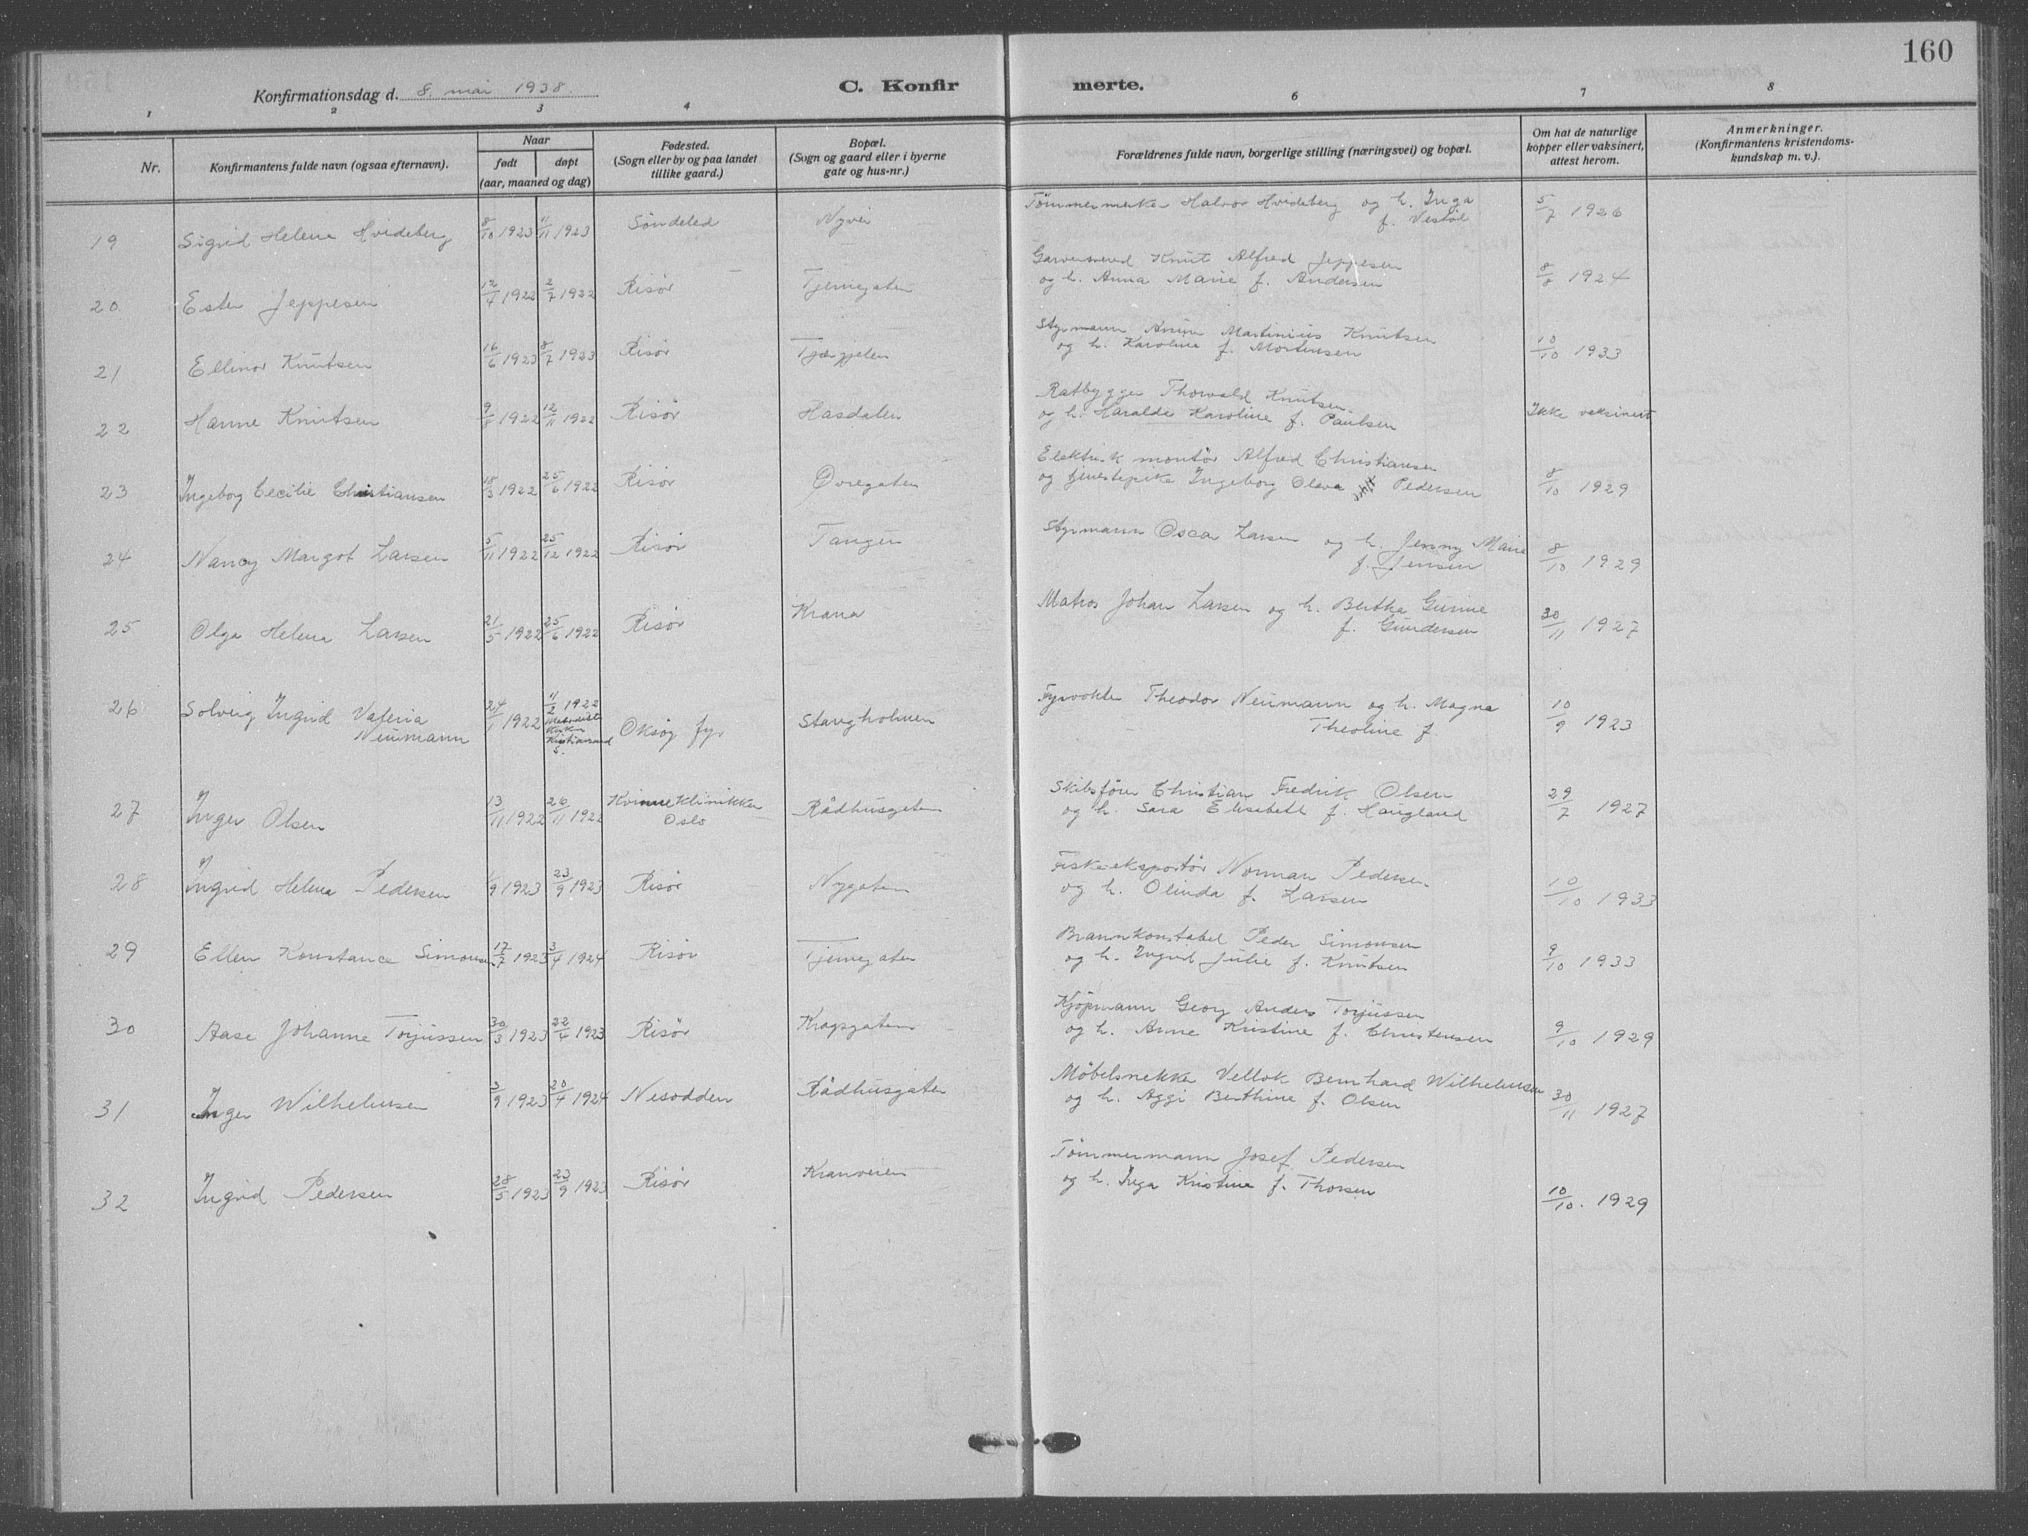 160
Konfirmationsdag d. 8. mai 1938.
C. Konfir
merte.
1 2 3 4 6 7 8
Nr.
Konfirmantens fulde navn (ogsaa efternavn).
Naar
født
døpt
(aar, maaned og dag)
Fødested.
(Sogn eller by og paa landet
tillike gaard.)
Bopæl.
(Sogn og gaard eller i byerne
gate og hus-nr.)
Forældrenes fulde navn, borgerlige stilling (næringsvei) og bopæl.
Om hat de naturlige
kopper eller vaksinert,
attest herom.
Anmerkninger.
(Konfirmantens kristendoms-
kundskap m. v.).
19 Sigrid Helene Hvideberg 8/10 1923 11/11 1923 Søndeled Nyvei Tömmermerker Halvor Hvideberg og h. Inga
f. Vestøl 5/7 1926
20 Ester Jeppesen 12/4 1922 2/7 1922 Risør Tjernegaten Garversvend Knut Alfred Jeppesen
og h. Anna Marie f. Andersen 8/8 1924
21 Ellinor Knutsen 16/6 1923 8/7 1923 Risør Styrmann Martinius Knutsen
og h. Karoline f. Mortensen 10/10 1933
22 Hanne Knutsen 1922 12/11 1922 Risør Hasdalen Ratbygger Thorvald Knutsen
og h. Haralde Karoline f. Paulsen Ikke vaksinert
23 Ingeborg Cecilie Christiansen 18/3 1922 25/6 1922 Risør Øvregaten Elektrisk montör Alfred Christiansen
og tjenestepike Ingeborg Olava Pedersen 8/10 1929
24 Nancy Margot Larsen 5/11 1922 25/12 1922 Risør Tangen Styrmann Oscar Larsen og h. Jenny Marie
f. Jensen 8/10 1929
25 Olga Helene Larsen 21/5 1922 25/6 1922 Risør Krana Matros Johan Larsen og h. Bertha Gurine
f. Gundersen 30/11 1927
26 Solveig Ingrid Valeria
Neumann 24/1 1922 11/2 1922
Metodist
kirken
Kristiansand
S. Oksøy fyr Stangholmen Fyrvokter Theodor Neumann og h. Magna
Theoline f. 10/9 1923
27 Inger Olsen 13/11 1922 26/11 1922 Kvinneklinikken
Oslo Rådhusgaten Skibsfører Christian Fredrik Olsen
og h. Sara Elisabeth f. Haugland 29/7 1927
28 Ingrid Helene Pedersen 1/9 1923 23/9 1923 Risør Nygaten Fiskeeksportör Norman Pedersen
og h. Olinda f. Larsen 10/10 1933
29 Ellen Konstance Simonsen 17/7 1923 3/4 1924 Risør Tjernegaten Brannkonstabel Peder Simonsen
og h. Ingrid Julie f. Knutsen 9/10 1933
30 Aase Johanne Torjussen 30/3 1923 22/4 1923 Risør Kragsgaten Kjöpmann Georg Anders Torjussen
og h. Anne Kristine f. Christensen 9/10 1929
31 Inger Wilhelmsen 3/9 1923 20/4 1924 Nesodden Rådhusgaten Møbelsnekker Bernhard Wilhelmsen
og h. Aggi Berthine f. Olsen 30/11 1927
32 Ingrid Pedersen 28/5 1923 23/9 1923 Risør Kranveien Tömmermann Josef Pedersen
og h. Inga Kristine f. Thorsen 10/10. 1929